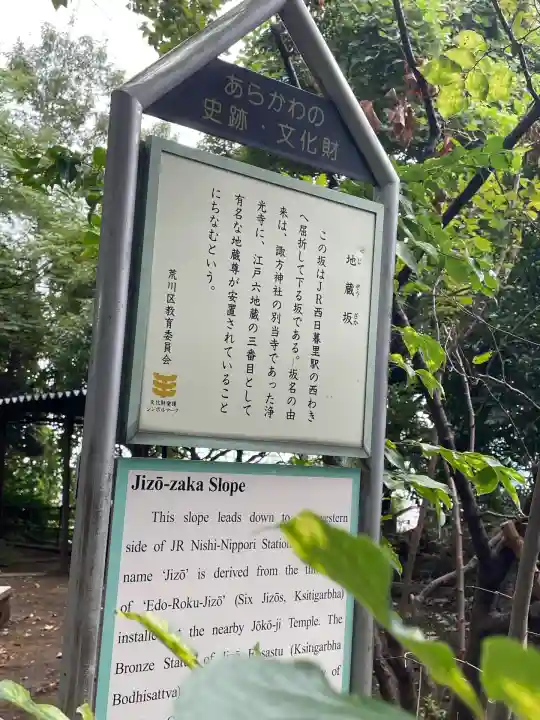 あらかわの
史跡・文化財
地蔵坂
じ ぞう ざか
この坂はJR西日暮里駅の西わき
へ屈折して下る坂である。坂名の由
来は、諏方神社の別当寺であった浄
光寺に、江戸六地蔵の三番目として
有名な地蔵尊が安置されていること
にちなむという。
荒川区教育委員会
文化財愛護
シンボルマーク
Jizō-zaka Slope
This slope leads down to western
side of JR Nishi-Nippori Station
name ‘Jizō’ is derived from the
of ‘Edo-Roku-Jizō’ (Six Jizōs, Ksitigarbha)
the nearby Jōkō-ji Temple. The
Bronze of (Ksitigarbha
Bodhisattva) of